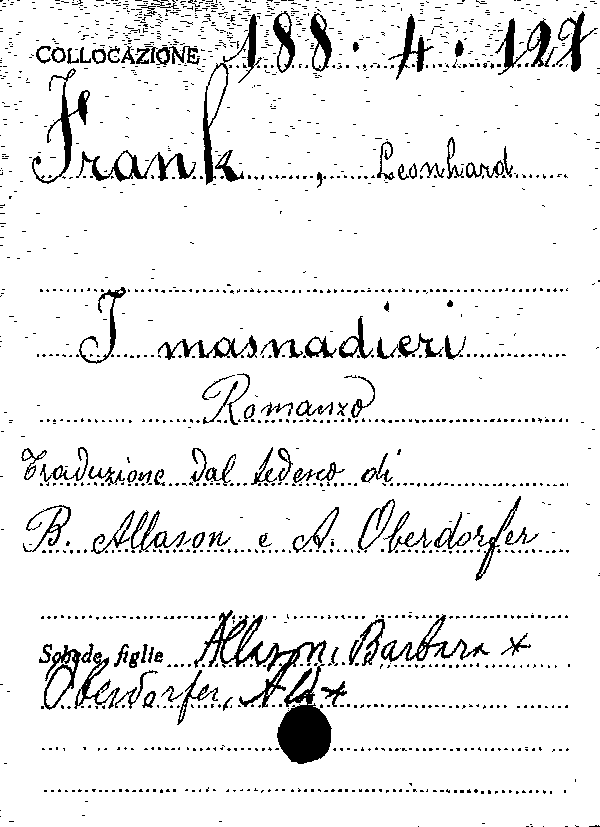 COLLOCAZIONE 188. 4. 127
Frank, Leonhard
I masnadieri
Romanzo
Traduzione dal tedesco di
B. Allason e A. Oberdorfer
Schede figlie Allason, Barbara +
Oberdorfer, Aldo +